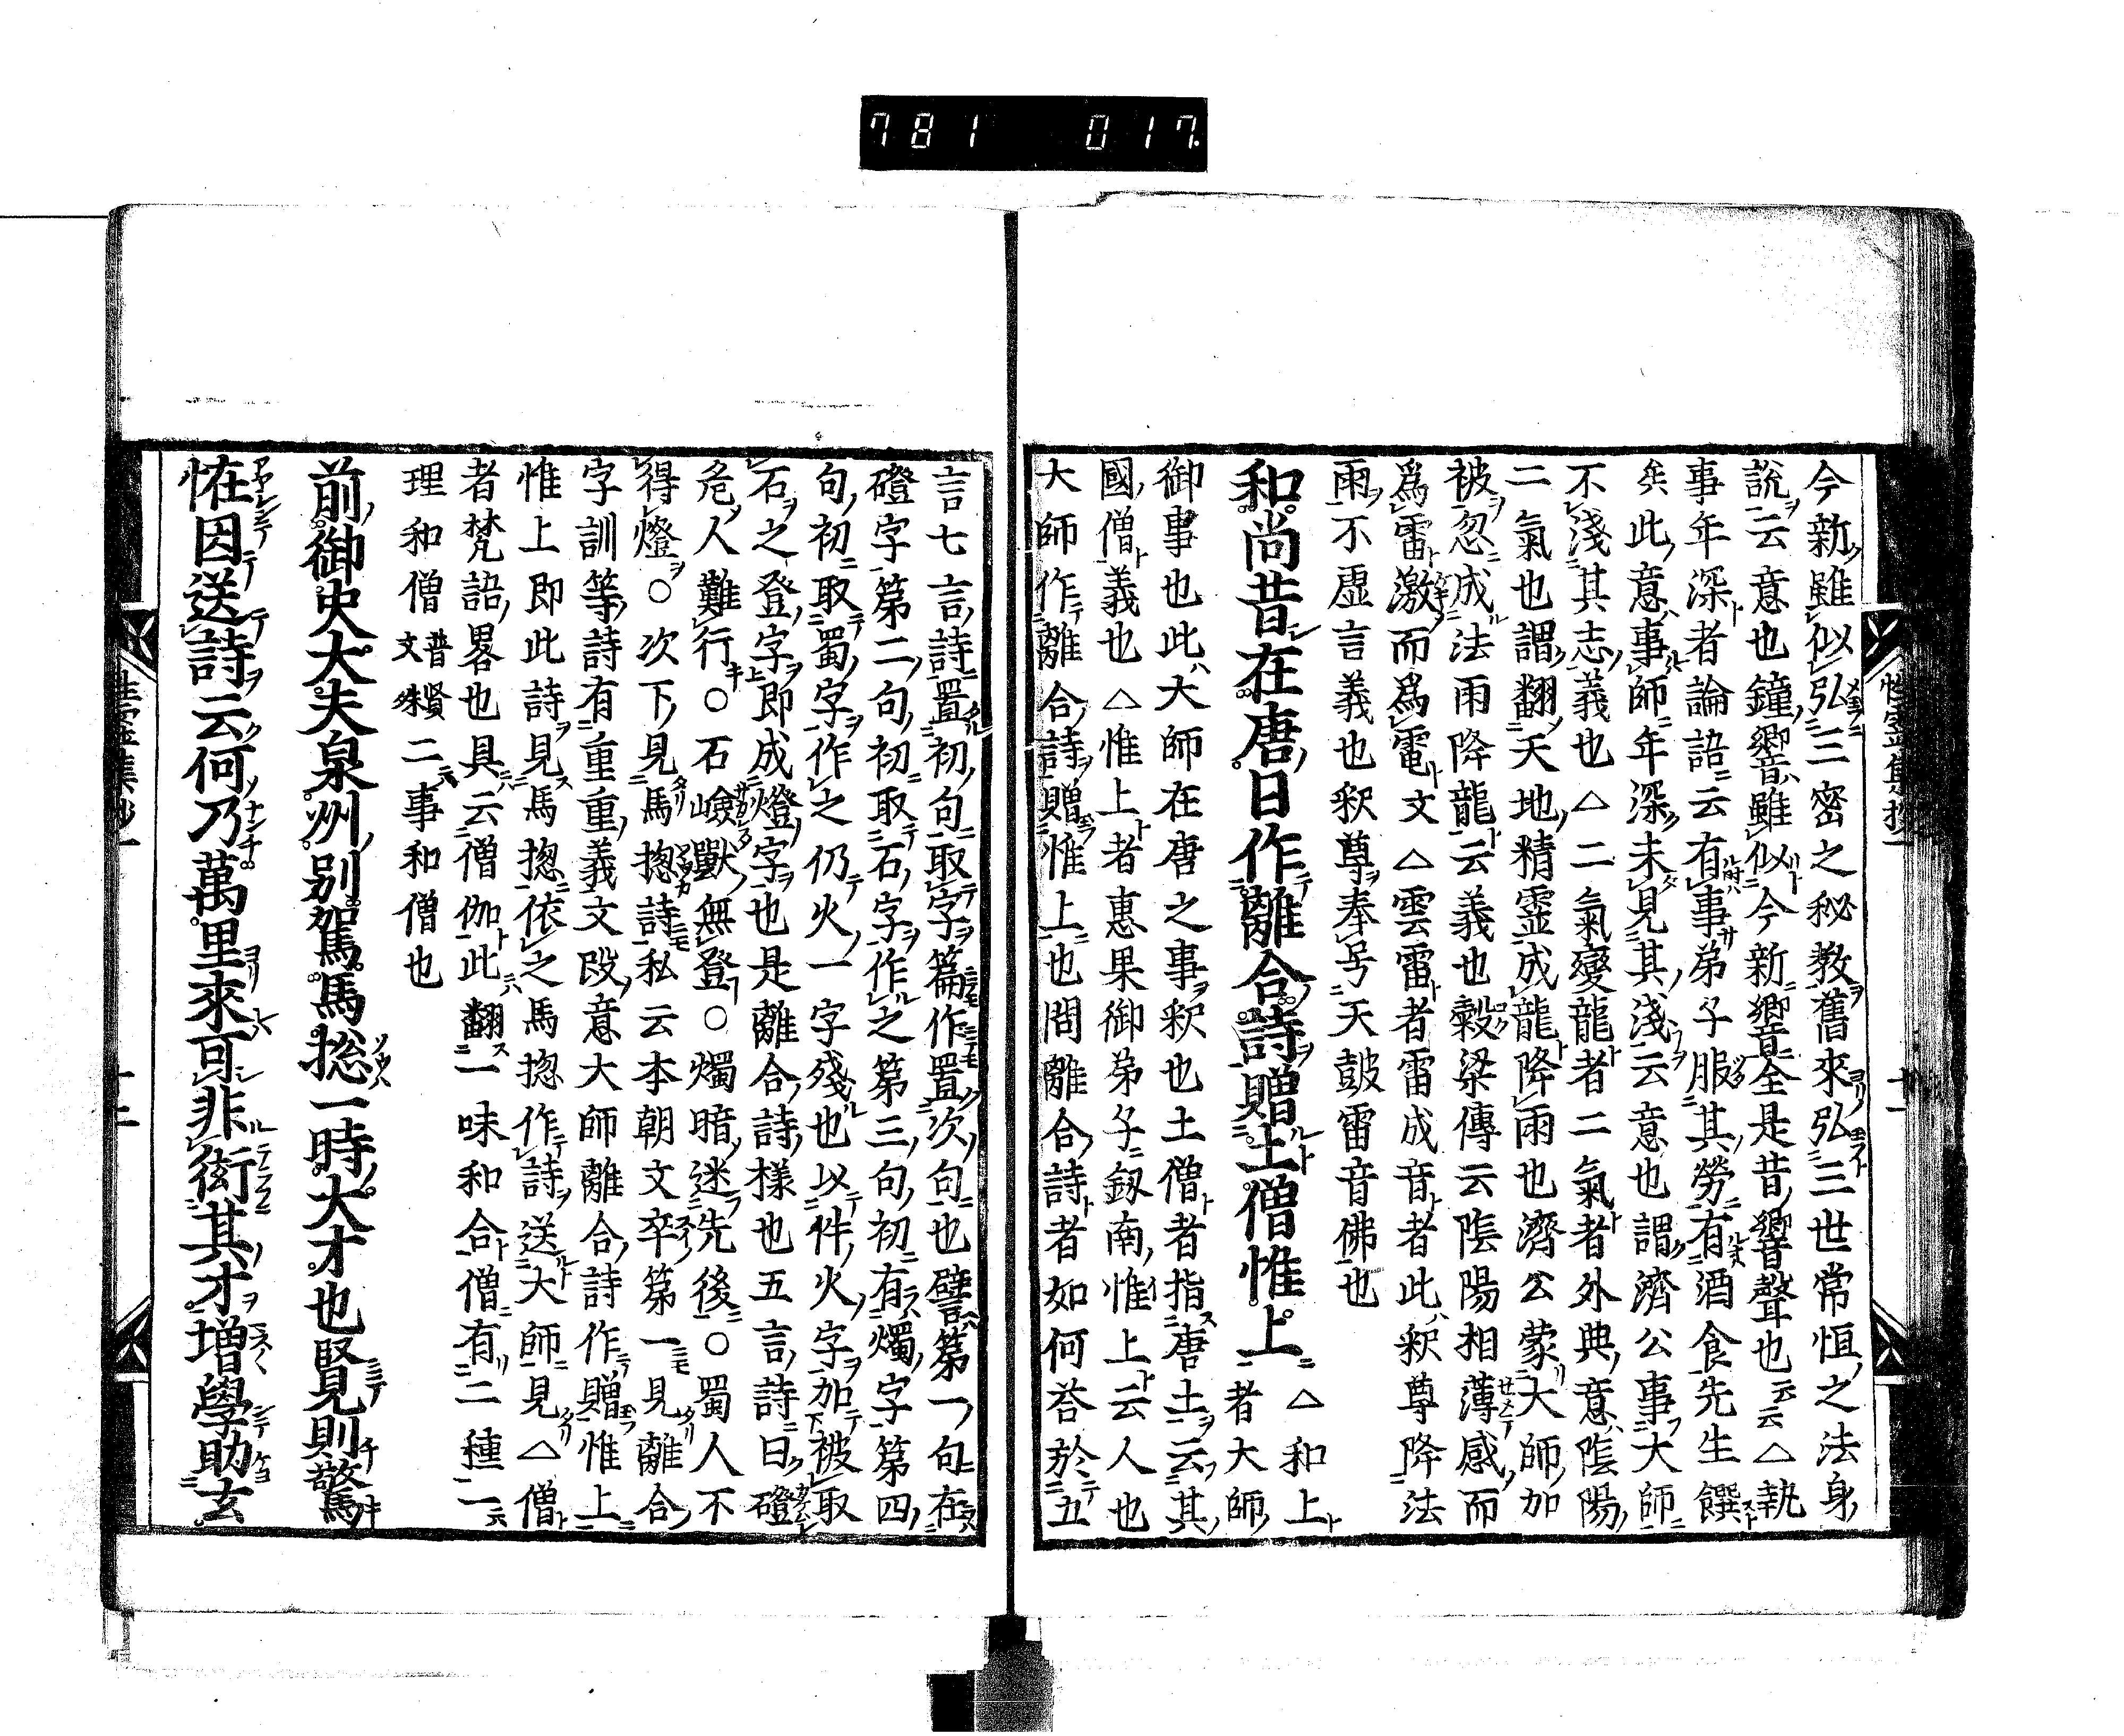 781 017.
今新雖似弘三密之秘教舊來弘三世常恒之法身
說云意也鐘響雖似今新響全是昔響聲也云云△執
事年深者論語云有事弟子服其勞有酒食先生饌
矣此意事師年深未見其淺云意也謂濟公事大師
不淺其志義也△二氣變龍者二氣者外典意陰陽
二氣也謂翻天地精霊成龍降雨也濟公蒙大師加
被忽成法雨降龍云義也穀梁傳云陰陽相薄感而
爲雷激而爲電文△雲雷者雷成音者此釈尊降法
雨不虚言義也釈尊奉号天鼓雷音佛也
和尚昔在唐日作離合詩贈土僧惟上△和上
者大師
御事也此大師在唐之事釈也土僧者指唐土云其
國僧義也△惟上者惠果御弟子釼南惟上云人也
大師作離合詩贈惟上也問離合詩者如何荅於五
言七言詩置初句取字篇作置次句也譬第一句在
磴字第二句初取石字作之第三句初有燭字第四
句初取蜀字作之仍火一字殘也以件火字加被取
石之登字即成燈字也是離合詩樣也五言詩曰磴
危人難行○石嶮獸無登○燭暗迷先後○蜀人不
得燈○次下見馬摠詩私云本朝文卒第一見離合
字訓等詩有重重義文段意大師離合詩作贈惟上
惟上即此詩見馬摠依之馬摠作詩送大師見△僧
者梵語畧也具云僧伽此翻一味和合僧有二種一
理和僧普賢文殊二事和僧也
前御史大夫泉州别駕馬摠一時大才也覽則驚
恠因送詩云何乃萬里來可非衒其才增學助玄
性霊集抄一
十二